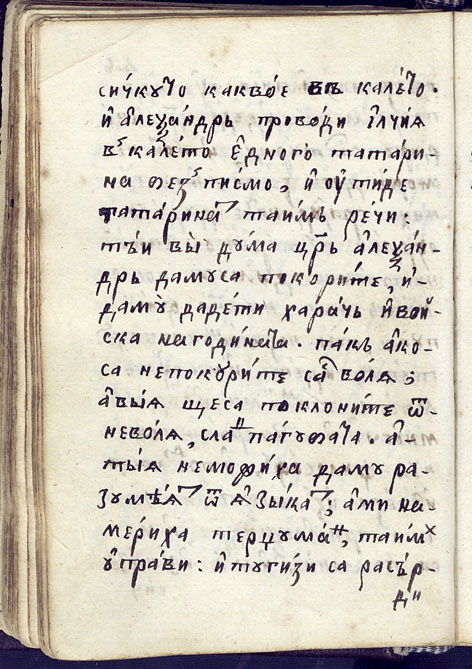 си́чкꙋто какво́е въ кале́то.
и҆ а҆леѯа́ндръ прово́ди і҆лчі́ѧ
въ кале́то є҆дного̀ татари-
на безъ писмо̀, и҆ ѹ҆ти́де
тата́рина таимъ ре́чи:
тъи вы̀ дꙋ́ма цр҃ь а҆леѯа́н-
дръ дамꙋса покорите, и҆-
дамꙋ̀ даде́ти хара́чь и҆вой-
ска нагоди́ната. пакъ а҆ко-
са непокори́те са во́лѧ;
а҆вы́ѧ щеса поклони́те ѿ-
нево́лѧ, слапагꙋбата. а҆-
ты́ѧ немоѳи́ха дамꙋ ра-
зꙋмѣ́ѧт ѿ ѧ҆зы́кат; а҆ми на-
мери́ха терꙉꙋма́н, таимъ
ѹ҆пра́ви: и҆тꙋги́зи са расъ́р-
ди